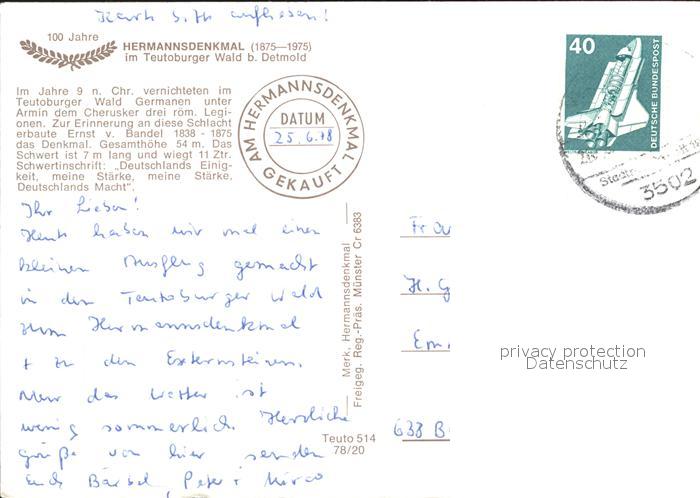 Karte b. H. aufheben!
100 Jahre
HERMANNSDENKMAL (1875—1975)
im Teutoburger Wald b. Detmold
Im Jahre 9 n. Chr. vernichteten im
Teutoburger Wald Germanen unter
Armin dem Cherusker drei röm. Legi-
onen. Zur Erinnerung an diese Schlacht
erbaute Ernst v. Bandel 1838 - 1875
das Denkmal. Gesamthöhe 54 m. Das
Schwert ist 7 m lang und wiegt 11 Ztr.
Schwertinschrift: „Deutschlands Einig-
keit, meine Stärke, meine Stärke,
Deutschlands Macht".
AM HERMANNSDENKMAL
DATUM
25.6.78
GEKAUFT
40
DEUTSCHE BUNDESPOST
3502
Ihr Lieben!
Heute haben wir mal einen
kleinen Ausflug gemacht
in den Teutoburger Wald
zum Hermannsdenkmal
+ zu den Externsteinen.
Nur das Wetter ist
wenig sommerlich. Herzliche
Grüße von hier senden
Euch Bärbel, Peter + Mirco
Merk, Hermannsdenkmal
Freigeg. Reg.-Präs. Münster Cr 6383
Teuto 514
78/20
H. G
Em.
633 B
privacy protection
Datenschutz